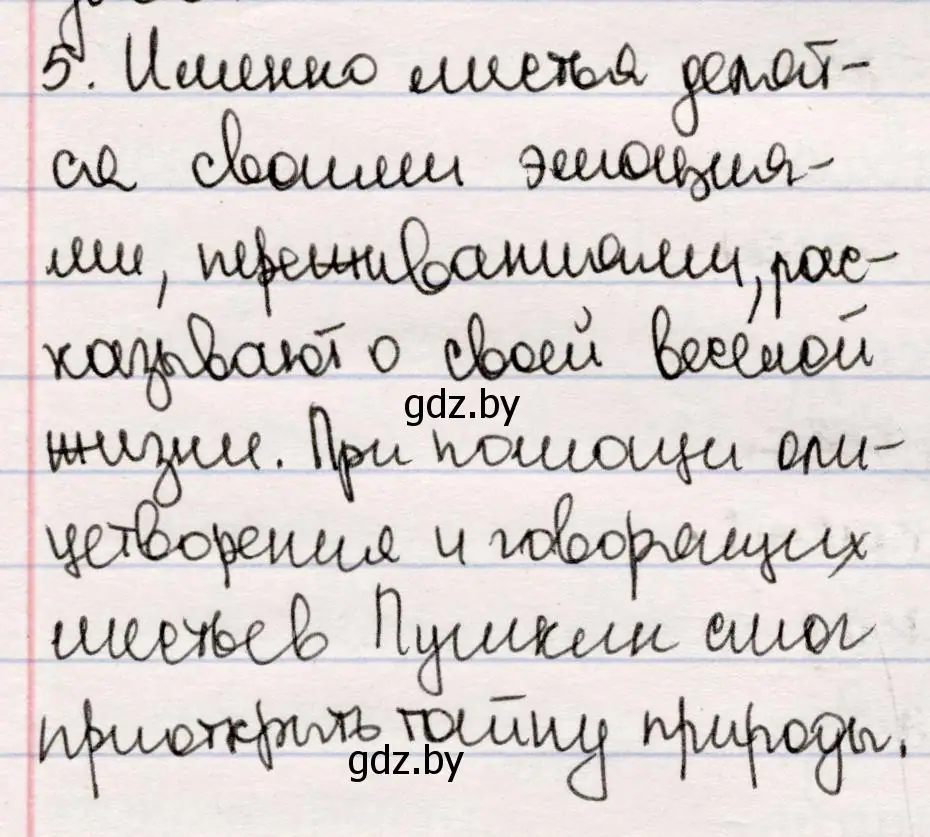 5. Именно листья делят-
ся своими эмоция-
ми, переживаниями, рас-
казывают о своей весёлой
gdz.by
жизни. При помощи оли-
цетворения и говорящих
листьев Пушкин смог
приоткрыть тайну природы.
gdz.by